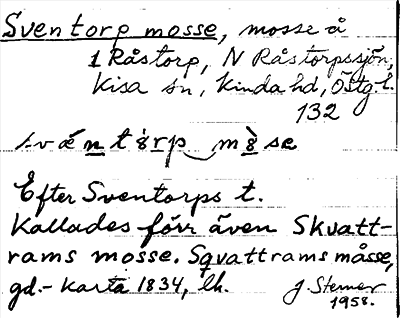 Sventorp mosse, mosse å
1 Råstorp, N Råstorpssjön,
Kisa sn, Kinda hd, Östg. l.
132
svæntórp mòse
Efter Sventorps t.
Kallades förr även Skvatt-
rams mosse. Sqvattrams måsse,
gd. - karta 1834, lk.
J. Sterner
1958.